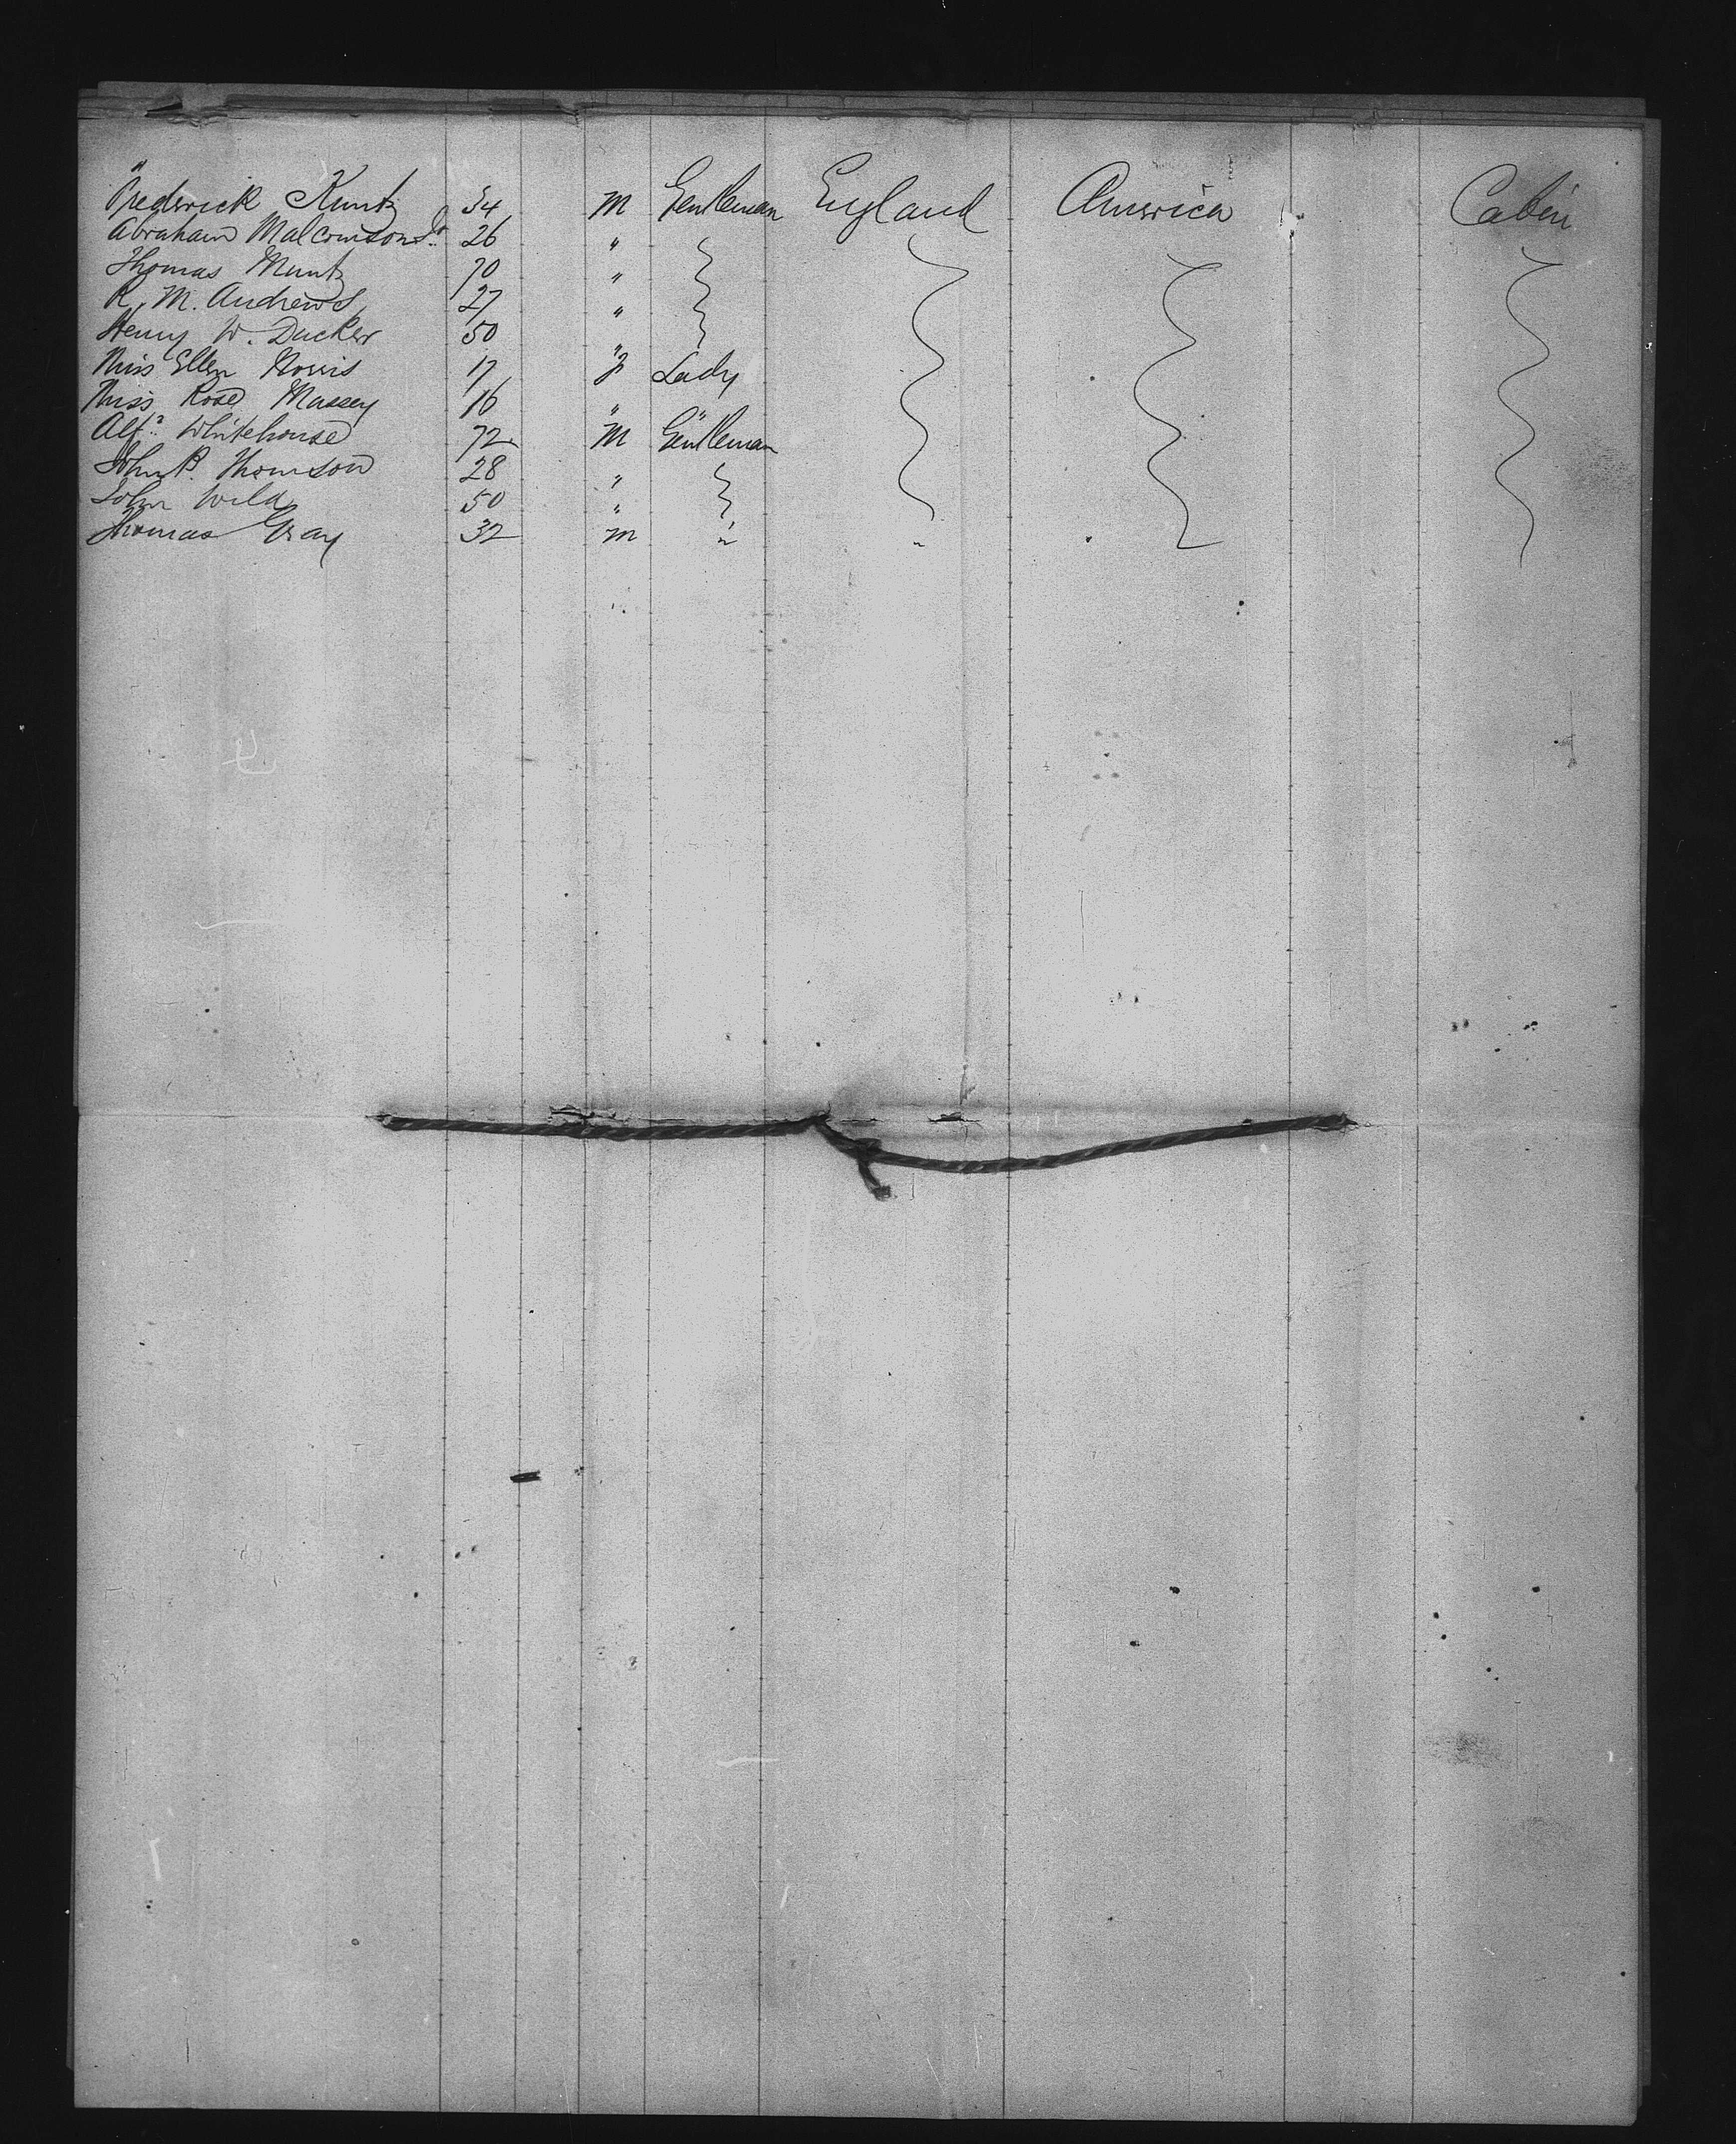 "
Frederick Kuntz 34 M Gentleman England America Cabin
Abraham Malcomson Jr. 26 "
Thomas Muntz 70 "
R. M. Andrews 27 "
Henry W. Ducker 50 "
Miss Ellen Norris 17 F Lady
Miss Rose Massey 16 " "
Alfd. Whitehouse 72 M Gentleman
John P. Thomson 28 "
John Wild 50 "
Thomas Gray 32 M " "